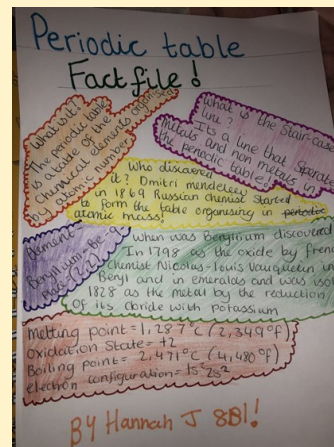 Periodic table
Fact file!
What is it?
The periodic table
is a table of the
chemical elements organised
by atomic number
What is the Stair-case
line?
Its a line that separate
metals and non metals in
the periodic table!
Who discovered
it? Dmitri mendeleev
in 1869 Russian chemist started
to form the table organising in periodic
atomic mass!
Element
Beryllium- Be 9
(2,2)
When was Beryllium discovered
In 1798 as the oxide by french
chemist Nicolas-Louis Vauquelin in
Beryl and in emeralds and was isol
1828 as the metal by the reduction
of its cloride with potassium
Melting point = 1,287°C (2,349°F)
Oxidation State = +2
Boiling point = 2,471°C (4,480°F)
electron configuration = 1s² 2s²
BY Hannah J 8B1!